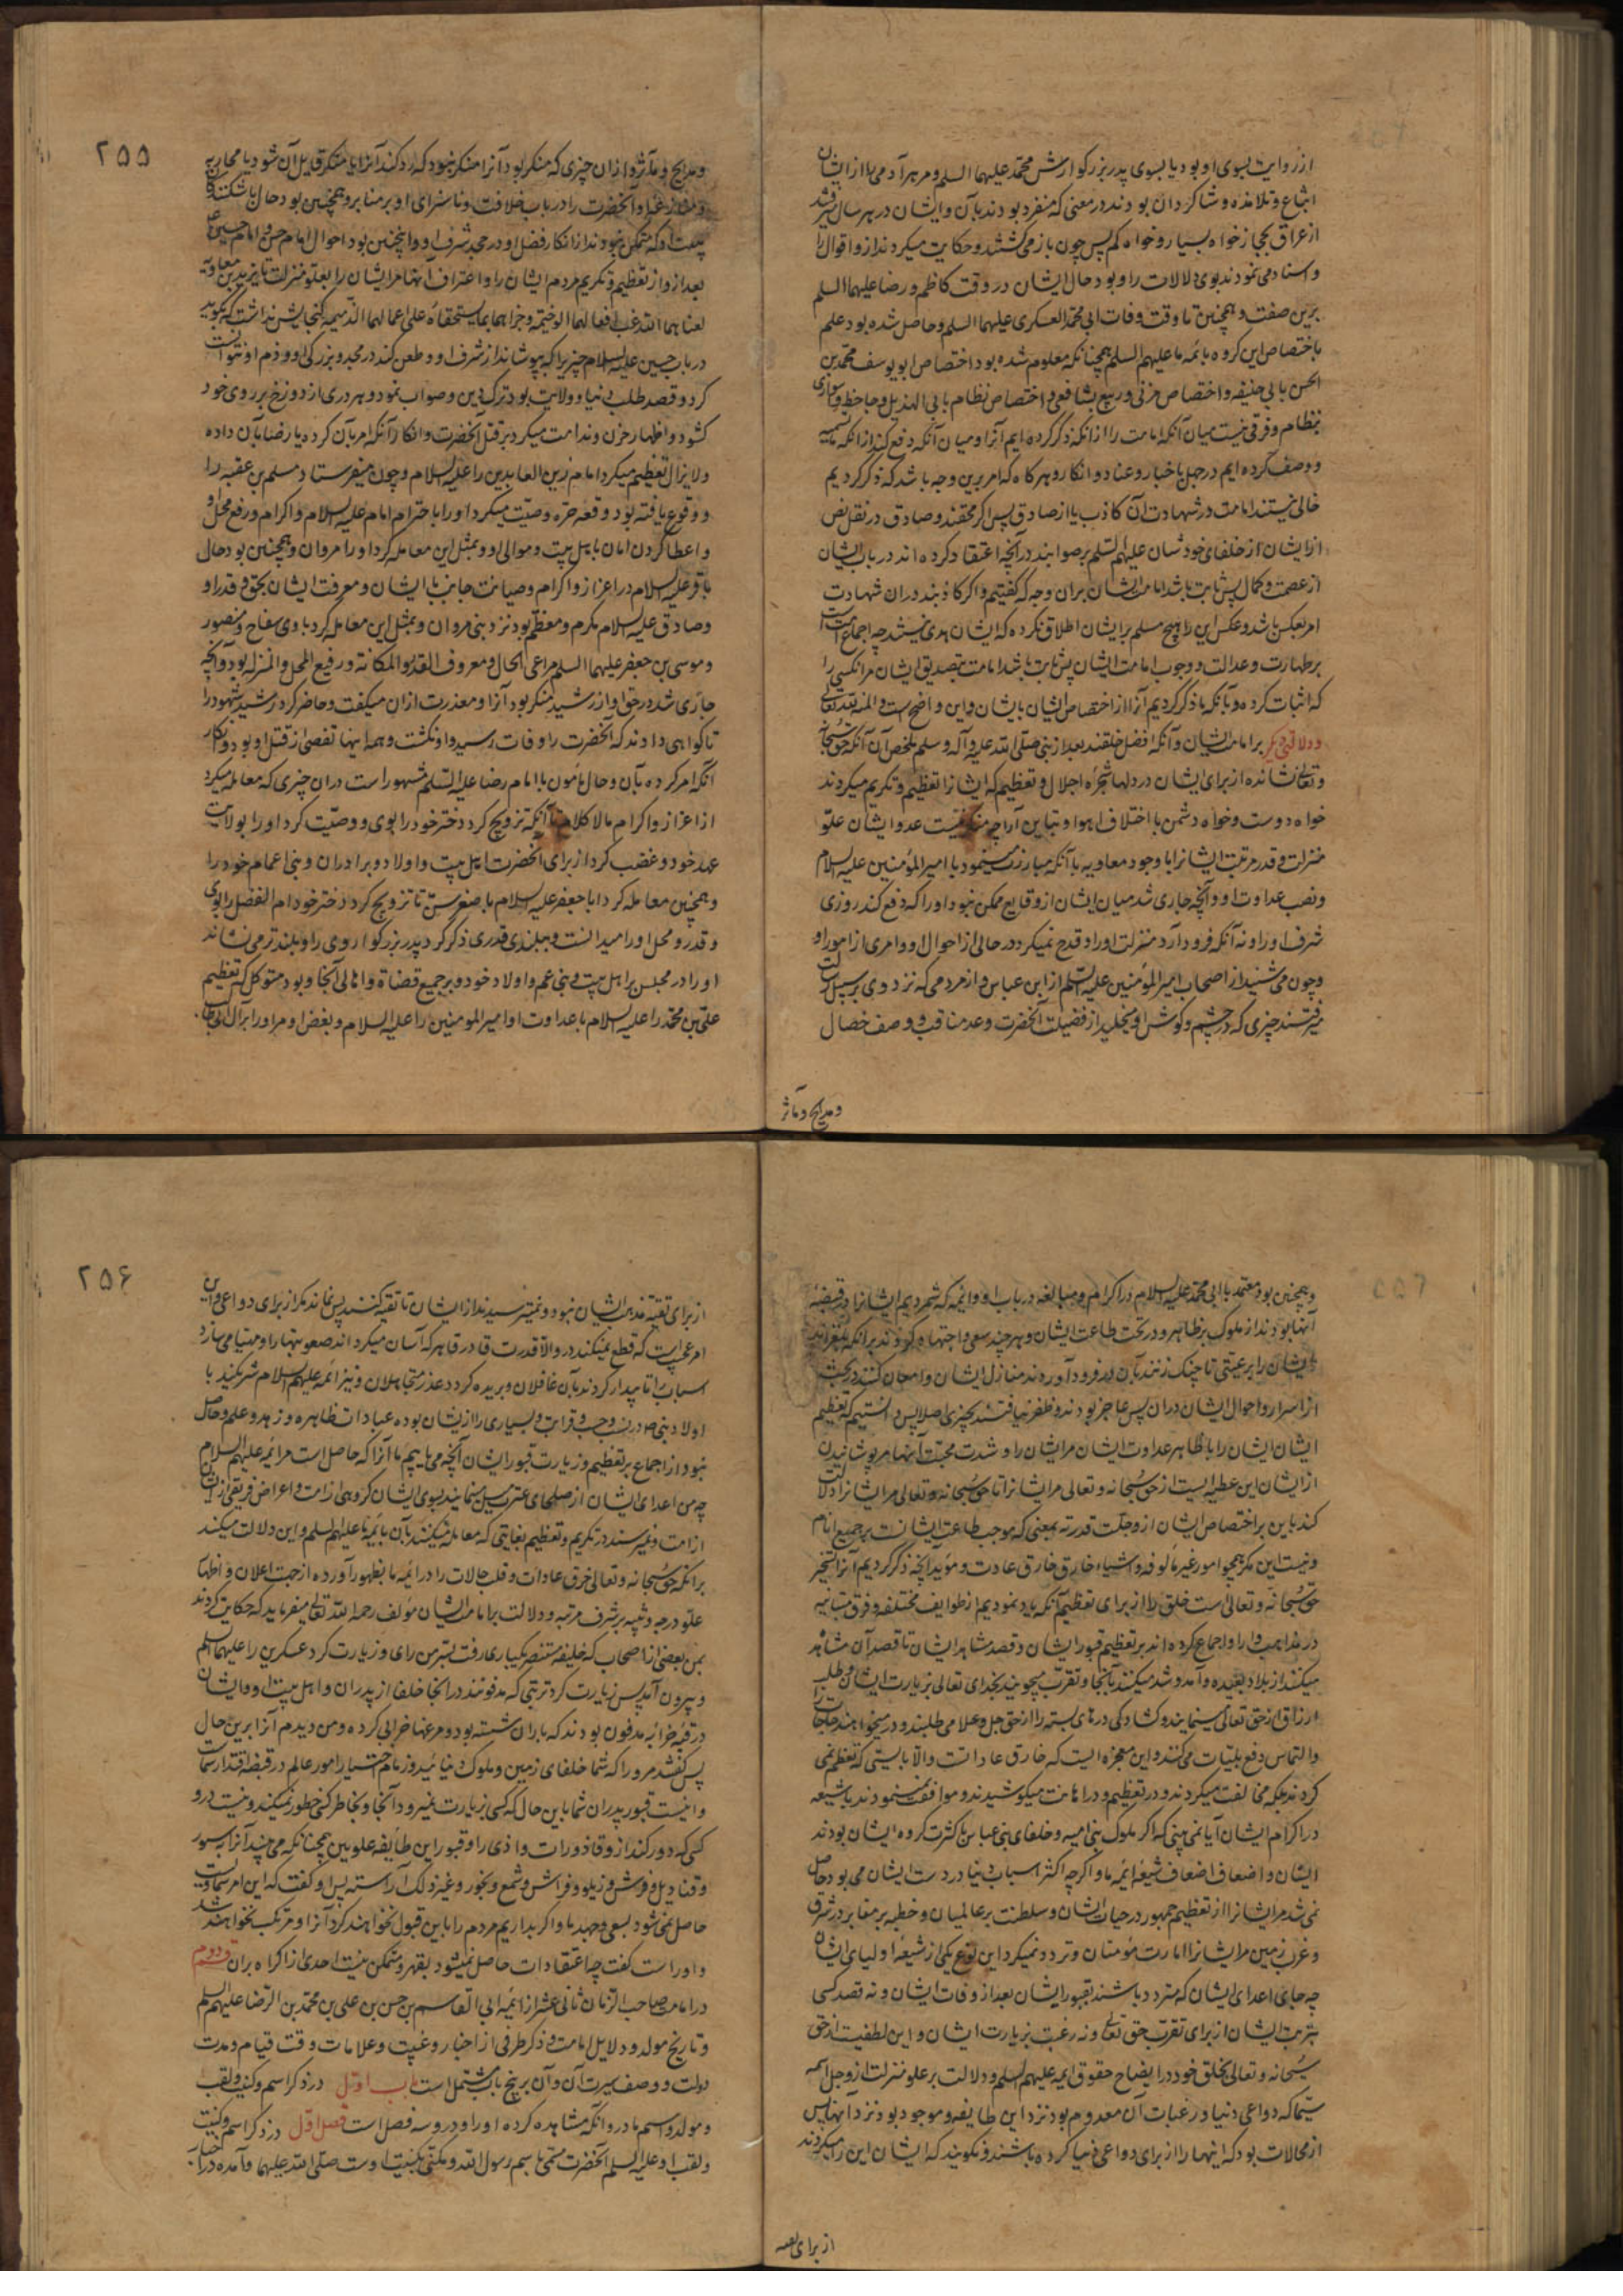 از روایت بسوی او بود یا بسوی پدر بزرکوارش محمد علیهما السلم و مر هر آدمی را از ایشان
اتباع و تلامذه و شاکردان بودند در معنی که منفرد بودند بآن و ایشان در هر سال میرفتند
از عراق بحجاز خواه بسیار و خواه کم پس چون باز می کشتند و حکایت میکردند از و اقوال را
و اسناد می نمودند بوی دلالات را و بود حال ایشان در وقت کاظم و رضا علیهما السلم
برین صفت و همچنین تا وقت وفات ابی محمد العسکری علیهما السلم و حاصل شده بود علم
باختصاص این کروه بائمه ما علیهم السلم همچنانکه معلوم شده بود اختصاص ابو یوسف و محمد بن
الحسن بابی حنیفه و اختصاص مزنی و ربیع بشافعی و اختصاص نظام بابی الهذیل و جاحظ و اسواری
بنظام و فرقی نیست میان آنکه امامت را از آنکه ذکر کرده ایم آنرا و میان آنکه دفع کند از آنکه ما تسمیه
و وصف کرده ایم در جهل باخبار و عناد و انکار و هر کاه که امر برین وجه باشد که ذکر کردیم
خالی نیستند امامت در شهادت آن کاذب یا از صادق پس اکر محقند و صادق در نقل نص
از ایشان از خلفای خودشان علیهم السلم بر صوابند در آنچه اعتقاد کرده اند در باب ایشان
از عصمت و کمال پس ثابت باشد امامت ایشان بران وجه که کفتیم و اکر کاذبند دران شهادت
امر بعکس باشد و عکس این را هیچ مسلم بر ایشان اطلاق نکرده که ایشان هدی نیستند چه اجماع امت است
بر طهارت و عدالت و وجوب امامت ایشان پس ثابت باشد امامت بتصدیق ایشان مر آنکسی را
که اثبات کرده و بآنکه ما ذکر کردیم آنرا از اختصاص ایشان بایشان و این واضح است و المنة لله تعالی
و دلالتی دیکر بر امامت ایشان و آنکه افضل خلقند بعد از نبی صلی الله علیه و آله و سلم ملخص آن آنکه حق سبحانه
و تعالی نشانده از برای ایشان در دلها شجره اجلال و تعظیم که ایشانرا تعظیم و تکریم میکردند
خواه دوست و خواه دشمن با اختلاف اهوا و تباین آرا چه عدو ایشان علو
منزلت و قدر مرتبت ایشانرا با وجود معاویه با آنکه مبارزت مینمود با امیر المؤمنین علیه السلام
و نصب عداوت او و آنچه جاری شد میان ایشان از وقایع ممکن نبود او را که دفع کند روزی
شرف او را و نه آنکه فرود آرد منزلت او را و قدح نمیکرد در حالی از احوال او و امری از امور او
و چون می شنید از اصحاب امیر المؤمنین علیه السلم از ابن عباس و از مردمی که نزد وی بر سبیل رسالت
میرفتند چیزی که در چشم و کوش او میخلید از فضیلت آنحضرت و عد مناقب و وصف خصال
و مدایح و مآثر
۲۵۵
و مدایح و مآثر و از ان چیزی که منکر بود آنرا منکر نبود که رد کند آنرا یا متنکر قایل آن شود یا محاربه
آنحضرت را در باب خلافت و ناسزای او بر منابر و همچنین بود حال ناشکننده
بیعت او که متمکن نبودند از انکار فضل او و در جحد شرف او و اینچنین بود احوال امام حسن و امام حسین ع
بعد از و از تعظیم و تکریم مردم ایشان را و اعتراف آنها مر ایشان را بعلو منزلت تا یزید بن معاویه
لعنهما الله غب افعالهما الوخیمة و جزاهما بما یستحقاه علی اعمالهما الذمیمة کنجایش نداشت که کوید
در باب حسین علیه السلام چیزیرا که بپوشاند از شرف او و طعن کند در مجد و بزرکی او و ذم او نتوانست
کرد و قصد طلب دنیا و ولایت بود ترک دین و صواب نمود و هر دری از دوزخ بر روی خود
کشود و اظهار حزن و ندامت میکرد بر قتل آنحضرت و انکار آنکه امر بآن کرد یا رضا بان داده
و لایزال تعظیم میکرد امام زین العابدین را علیه السلام و چون میفرستاد مسلم بن عقبه را
و وقوع یافته بود وقعه حره وصیت میکرد او را با حترام امام علیه السلام و اکرام و رفع محل او
و اعطا کردن امان باهل بیت و موالی او و بمثل این معامله کرد او را مروان و همچنین بود حال
باقر علیه السلام در اعزاز و اکرام و صیانت جانب با ایشان و معرفت ایشان بحق و قدر او
و صادق علیه السلام مکرم و معظم بود نزد بنی مروان و بمثل این معامله کرد با وی سفاح و منصور
و موسی بن جعفر علیهما السلم مراعی الحال و معروف القدر و المکانة و رفیع المحل و المنزله بود و آنچه
جاری شد در حق او از رشید منکر بود آنرا و معذرت ازان میکفت و حاضر کرد رشید شهود را
تا کواهی دادند که آنحضرت را وفات رسید و او نکشت و همه اینها تفصی از قتل او بود و انکار
آنکه امر کرده بآن و حال مأمون با امام رضا علیه السلم مشهور است دران چیزی که معامله میکرد
از اعزاز و اکرام مالا کلام تا آنکه تزویج کرد دختر خود را بوی و وصیت کرد او را بولایت
عهد خود و غضب کرد از برای آنحضرت اهل بیت و اولاد و برادران و بنی اعمام خود را
و همچنین معامله کرد ابا جعفر علیه السلام با صغر سن تا تزویج کرد دختر خود ام الفضل را بوی
و قدر و محل او را میدانست و ببلندی قدری ذکر کرد پدر بزرکوار وی را و بلندتر می نشاند
او را در مجلس بر اهل بیت و بنی عم و اولاد خود و بر جمیع قضاة و اهالی آنجا و بود متوکل که تعظیم
علی بن محمد را علیه السلام با عداوت او امیر المومنین را علیه السلام و بغض او مر او را بر آل ابی طالب
و همچنین بود معتمد با ابی محمد علیه السلام در اکرام و مبالغه در باب او و ائمه که شمردیم ایشانرا در قبضه
آنها بودند از ملوک بر ظاهر و در تحت طاعت ایشان و هر چند سعی و اجتهاد کردند بر آنکه
ایشان را بر عیبی تا چنک زنند بآن در فرود آوردند منازل ایشان و امعان کنند در بحث
از اسرار و احوال ایشان دران پس عاجز بودند و ظفر نیافتند بچیزی اصلا پس دانستیم که تعظیم
ایشان ایشان را با ظاهر عداوت ایشان مر ایشان را و شدت محبت آنها مر پوشانیدن
از ایشان این عطیه ایست از حق سبحانه و تعالی مر ایشانرا تا حق سبحانه و تعالی مر ایشانرا دلالت
کند باین بر اختصاص ایشان از و جلت قدرته بمعنی که موجب طاعت ایشانست بر جمیع انام
و نیست این مکر همچو امور غیر مألوفه و اشیاء خارق عادت و مؤید آنچه ذکر کردیم آنرا تسخیر
حق سبحانه و تعالی است خلق را از برای تعظیم آنکه یاد نمودیم از طوایف مختلفه و فرق متباینه
در مذاهب و آرا و اجماع کرده اند بر تعظیم قبور ایشان و قصد مشاهد ایشان تا قصد آن مشاهد
میکنند از بلاد بعیده و آمد و شد میکنند بآنجا و تقرب میجویند بخدای تعالی بزیارت ایشان و طلب
ارزاق از حق تعالی مینمایند و کشادکی درهای بسته را از حق جل و علا می طلبند و در میخواهند حاجات را
و التماس دفع بلیات می کنند و این معجزه ایست که خارق عادات است و الا بایستی که تعظیم نمی
کردند بلکه مخالفت میکردند و در تعظیم و در اهانت میکوشیدند و موافقت نمی نمودند با شیعه
در اکرام ایشان آیا نمی بینی که اکر ملوک بنی امیه و خلفای بنی عباس با کثرت کروه ایشان بودند
ایشان و اضعاف اضعاف شیعه ائمه ما و اکرچه اکثر اسباب دنیا در دست ایشان می بود حاصل
نمی شد مر ایشانرا از تعظیم جمهور در حیات ایشان و سلطنت بر عالمیان و خطبه بر منابر در شرق
و غرب زمین مر ایشانرا امارت مؤمنان و تردد نمیکرد این نوع یکی از شیعه اولیای ایشان
چه جای اعدای ایشان که متردد باشند بقبور ایشان بعد از وفات ایشان و نه قصد کسی
بتربت ایشان از برای تقرب حق تعالی و نه رغبت بزیارت ایشان و این لطفیست از حق
سبحانه و تعالی بخلق خود در ایضاح حقوق ایمه علیهم السلم و دلالت بر علو منزلت از و جل اسمه
سیما که دواعی دنیا و رغبات آن معدوم بود نزد این طایفه و موجود بود نزد آنها پس
از محالات بود که اینها را از برای دواعی دنیا کرده باشند و نکویند که ایشان این را میکردند
از برای تقیه
۲۵۶
از برای تقیه غدر ایشان نبود و نمیترسیدند از ایشان تا تقیه کنند پس نماند مکر از برای دواعی و این
امر عجیبیست که قطع نمیکند در و الا قدرت قادر قاهر که آسان میکرداند صعوبتها را و مهیا می سازد
اسباب را تا بیدار کردند بآن غافلان و بریده کردد عذر متجاهلان و نیز ائمه علیهم السلام شریکند با
اولاد نبی ص در نسب و حسب و قرابت و بسیاری را از ایشان بوده عبادات ظاهره و زهد و علم و حاصل
نبود از اجماع بر تعظیم و زیارت قبور ایشان آنچه می یابیم ما آنرا که حاصل است مر ائمه علیهم السلام
چه من اعدای ایشان از صلحای عترت میل نمایند بسوی ایشان کروهی از امت و اعراض فریقی از ایشان
از امت و نمیرسند در تکریم و تعظیم بغایتی که معامله میکنند بآن بائمه ما علیهم السلم و این دلالت میکند
بر آنکه حق سبحانه و تعالی خرق عادات و قلب حالات را در ائمه ما بظهور آورده از جهت اعلان و اظهار
علو درجه و تنبیه بر شرف مرتبه و دلالت بر امامت ایشان مؤلف رحمه الله تعالی میفرماید که حکایت کردند
بمن بعضی از اصحاب که خلیفه مستنصر یکباری رفت بسر من رای و زیارت کرد عسکریین را علیهما السلم
و بیرون آمد پس زیارت کرد تربتی که مدفونند در آنجا خلفا از پدران و اهل بیت او و ایشان
در قبه خرابه مدفون بودند که باران شسته بود و مرغها خرابی کرده و من دیدم آنرا برین حال
پس کفتند مر او را که شما خلفای زمین و ملوک دنیائید و زمام اختیار امور عالم در قبضه اقتدار شماست
و اینست قبور پدران شما باین حال که کسی زیارت نمیرود آنجا و بخاطر کسی خطور نمیکند و نیست درو
کسی که دور کند از و قاذورات و اذی را و قبور این طایفه علویین همچنانکه می بینید آنرا بستور
و قنادیل و فروش و زیلو و فراش و شمع و بخور و غیر ذلک آراسته پس او کفت که این امر سماویست
حاصل نمی شود بسعی و جهد ما و اکر بداریم مردم را باین قبول نخواهند کرد آنرا و مرتکب نخواهند شد
و او راست کفت چه اعتقادات حاصل نمیشود بقهر و متمکن نیست احدی از اکراه بران قسم دوم
در امامت صاحب الزمان ثانی عشر از ائمه ابی القاسم بن حسن بن علی بن محمد بن الرضا علیهم السلم
و تاریخ مولد و دلایل امامت و ذکر طرفی از اخبار و غیبت و علامات وقت قیام و مدت
دولت و وصف سیرت آن و آن بر پنج باب مشتمل است باب اول در ذکر اسم و کنیه و لقب
و مولد و اسم مادر و آنکه مشاهده کرده او را و درو سه فصل است فصل اول در ذکر اسم و کنیت
و لقب او علیه السلم آنحضرت مسمی باسم رسول الله و مکنی بکنیت اوست صلی الله علیهما و آمده در اخبار